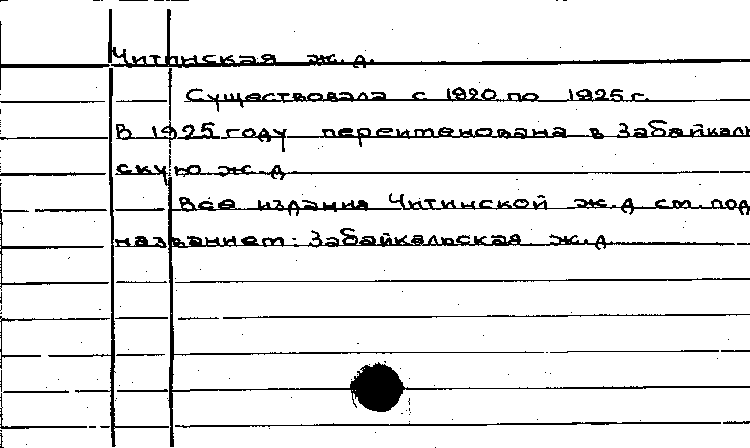 Читинская ж.д.
Существовала с 1920 по 1925 г.
В 1925 году переименована в Забайкаль
скую ж.д.
Все издания Читинской ж.д см. под
названием: Забайкальская ж.д